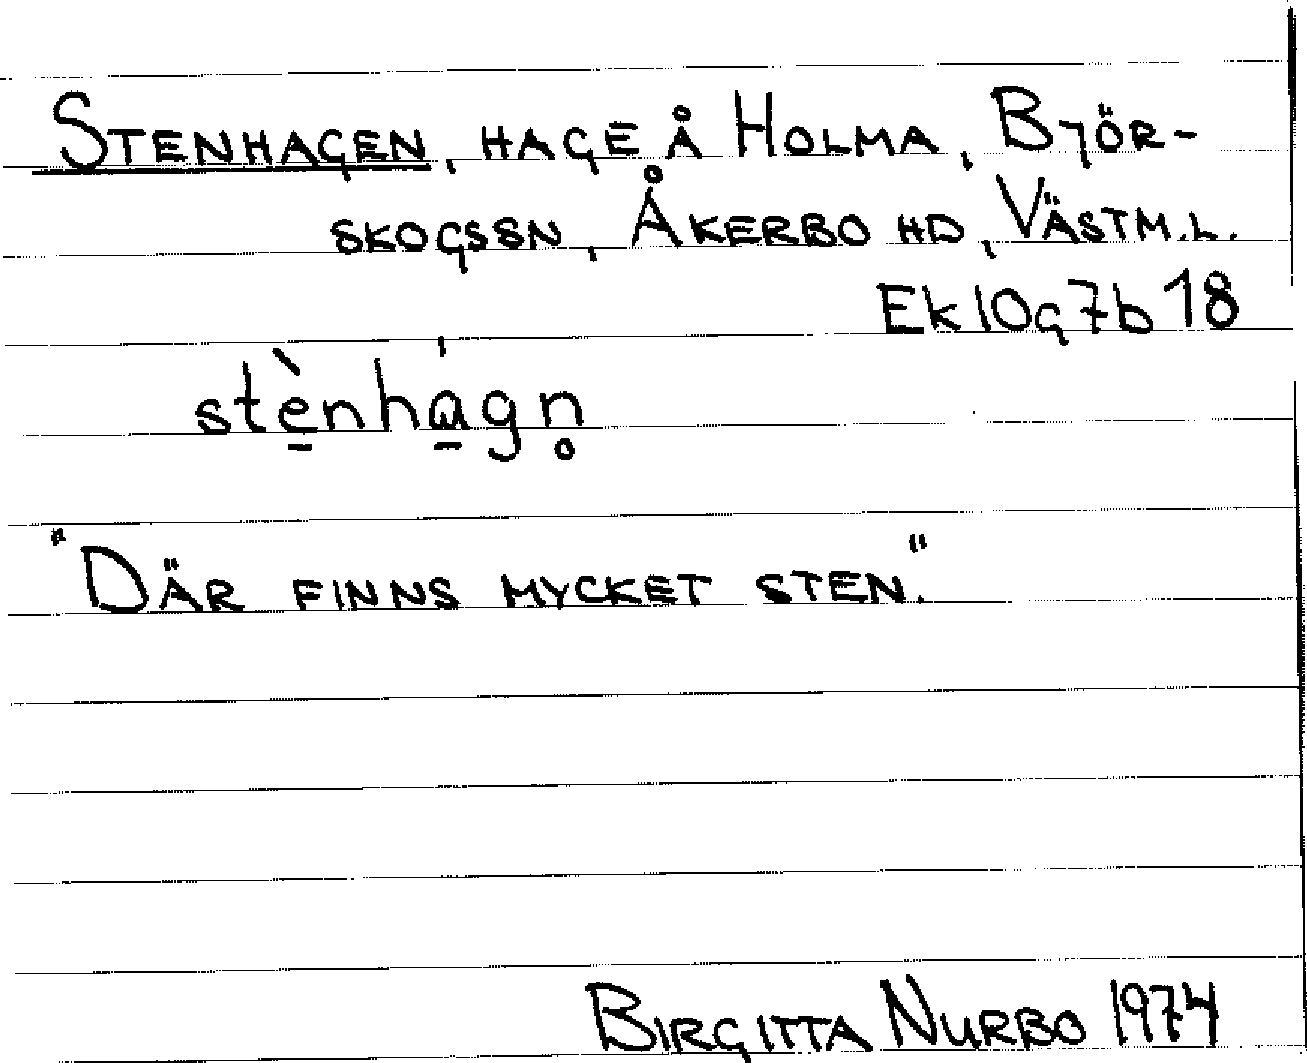 STENHAGEN, HAGE Å HOLMA, BJÖR-
SKOGSSN, ÅKERBO HD, VÄSTM.L.
Ek 10g7b 18
stè̱nhá̱gn̥
"DÄR FINNS MYCKET STEN."
BIRGITTA NURBO 1974